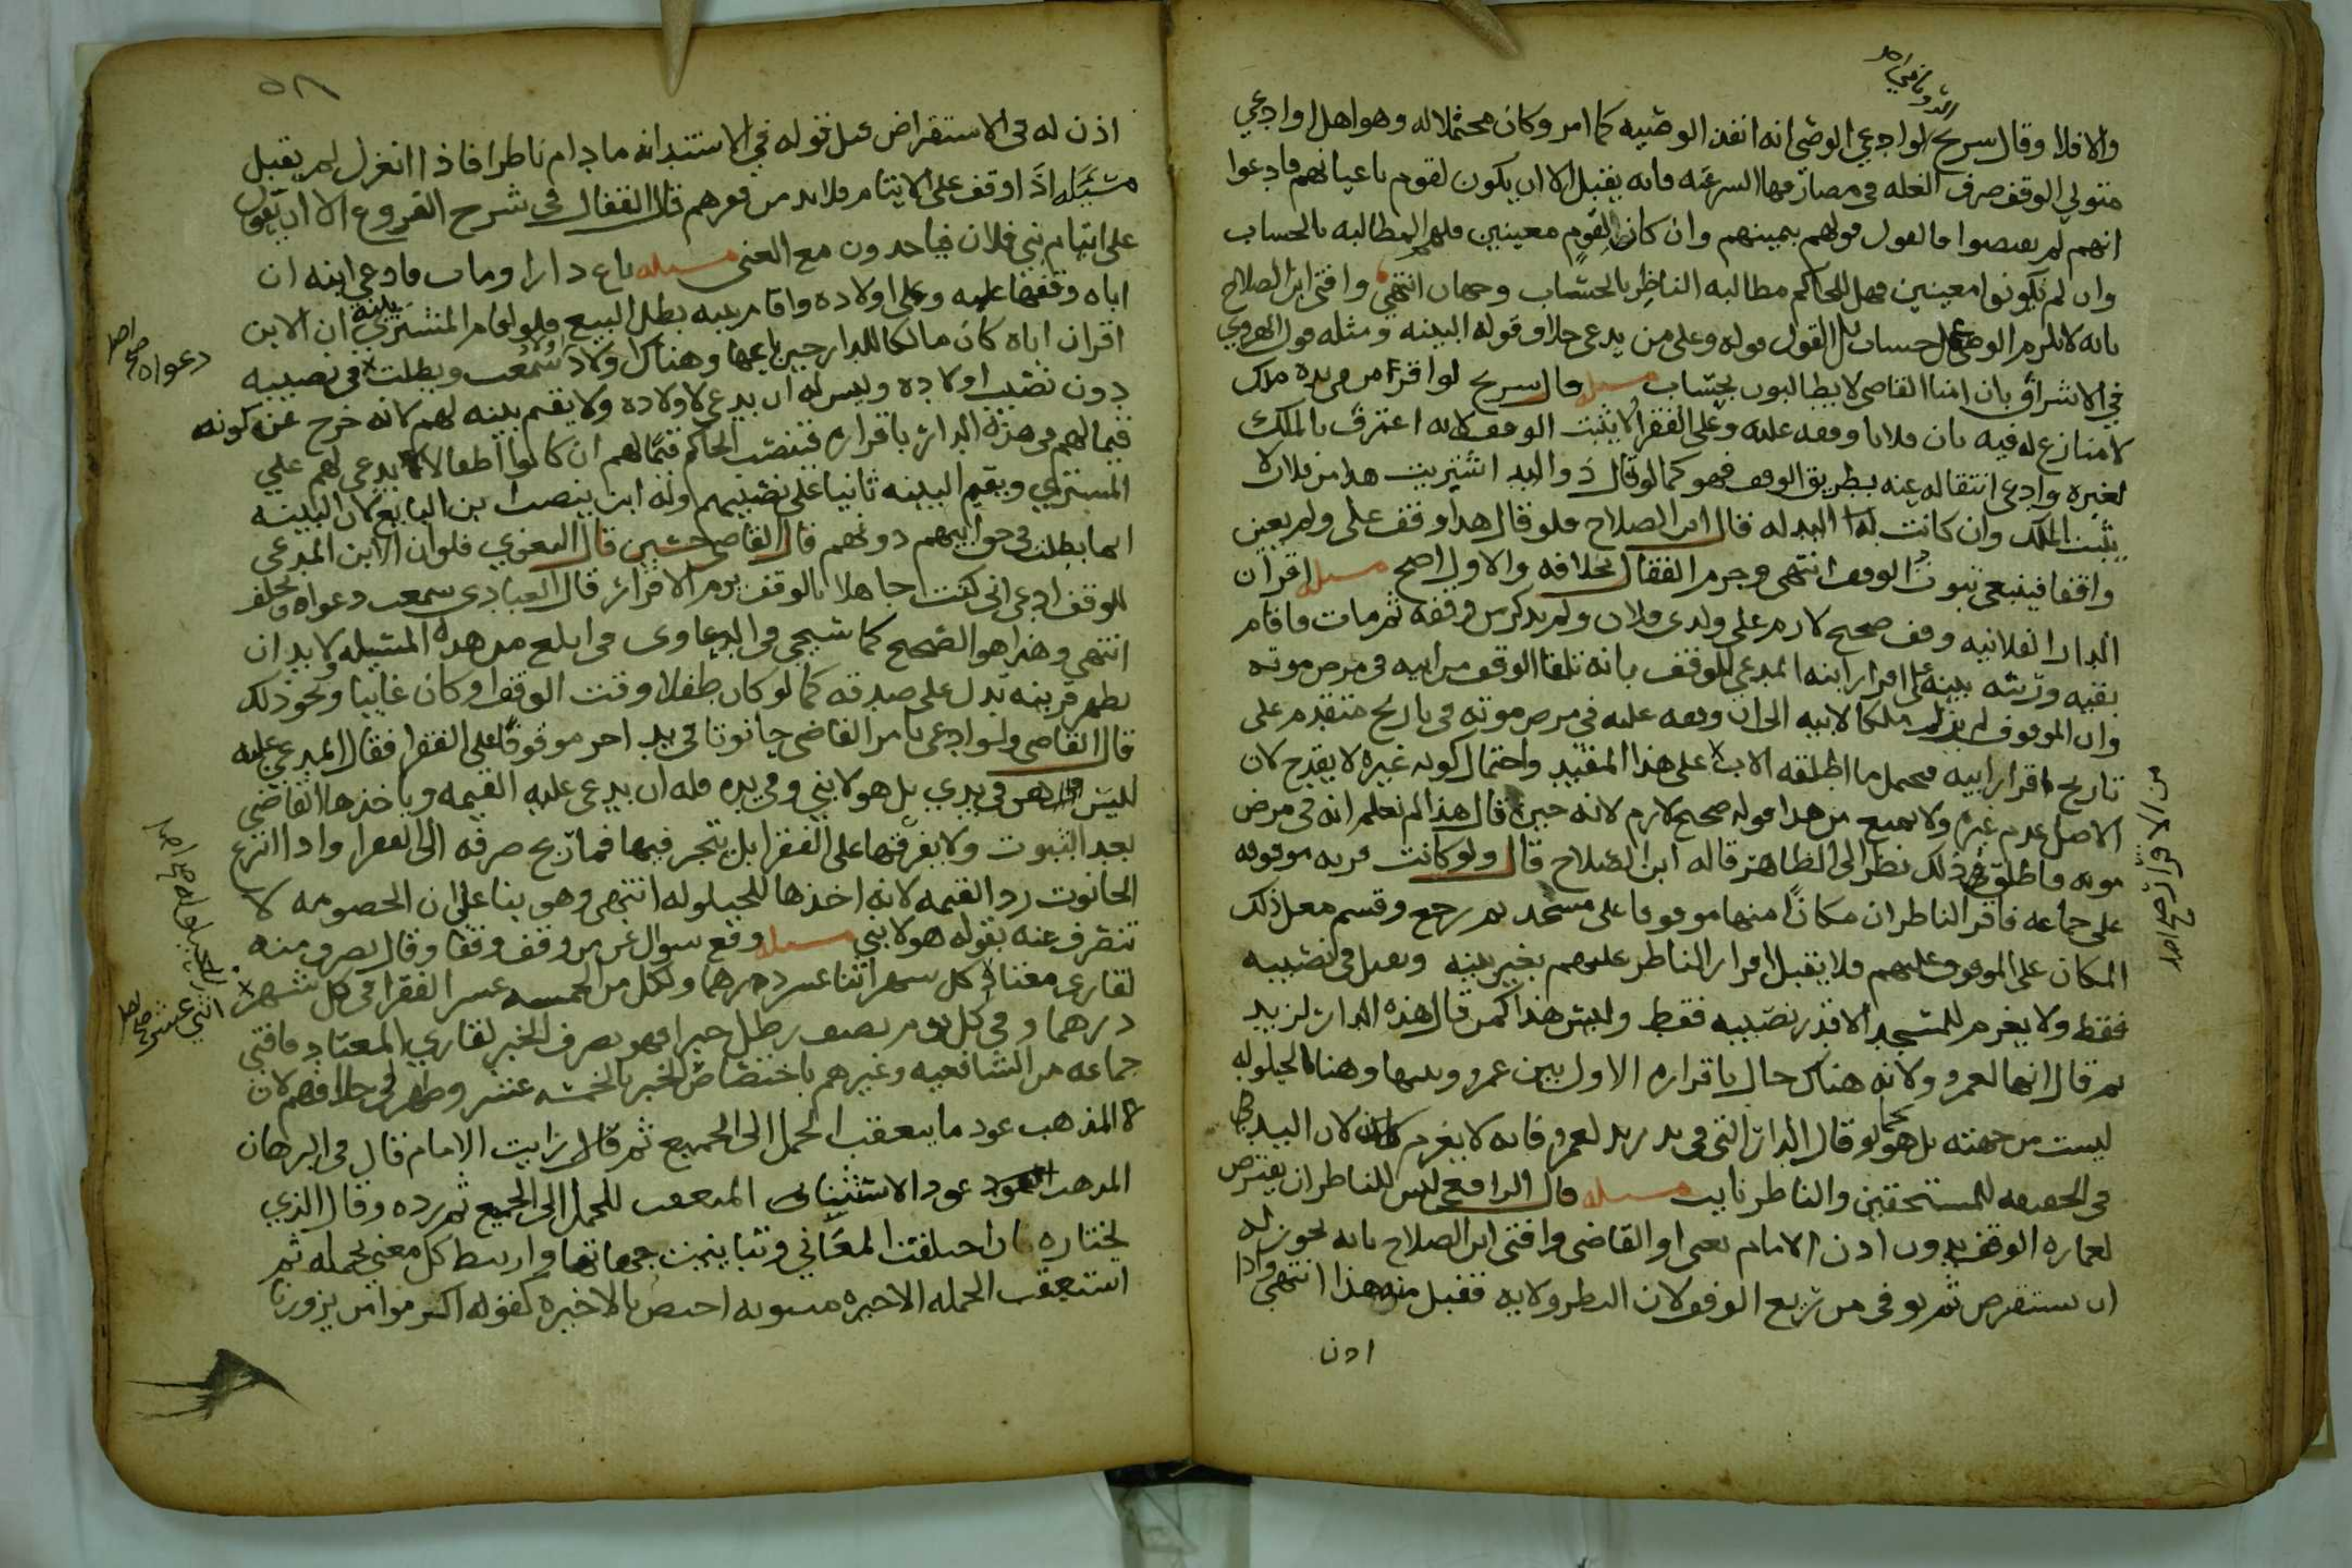 والا فلا وقال سريح لو ادعى الوصي انه انفذ الوصيه كما امر وكان محتملا له وهو اهل او ادعى
متولي الوقف صرف الغله في مصارفها الشرعيه فانه يقبل الا ان يكون لقوم باعيانهم فادعوا
انهم لم يقبضوا فالقول قولهم بيمينهم وان كان القوم معينين فلهم المطالبه بالحساب
وان لم يكونوا معينين فهل للحاكم مطالبه الناظر بالحساب وجهان انتهى وافتى ابن الصلاح
بانه لا يلزم الوصي حساب بل القول قوله وعلى من يدعي خلاف قوله البينه ومثله قول الهروي
في الاشراف بان امنا القاضي لا يطالبون بحساب مسله قال سريح لو اقر من في يده ملك
لا منازع له فيه بان فلانا وقفه عليه وعلى الفقرا لا يثبت الوقف لانه اعترف بالملك
لغيره وادعى انتقاله عنه بطريق الوقف فهو كما لو قال ذو اليد اشتريت هذا من فلان لا
يثبت الملك وان كانت اليد له قال ابن الصلاح فلو قال هذا وقف علي ولم يعين
واقفا فينبغي ثبوت الوقف انتهى وجزم القفال بخلافه والاول اصح مسله اقر ان
الدار الفلانيه وقف صحيح لازم على ولدي فلان ولم يذكر من وقفه ثم مات فاقام
بقيه ورثته بينه على اقرار ابنه المدعي للوقف بانه تلقا الوقف من ابيه في مرض موته
وان الموقوف لم يزل ملكا لابيه الى ان وقفه عليه في مرض موته في تاريخ متقدم على
تاريخ اقرار ابيه فيحمل ما اطلقه الاب على هذا المقيد واحتمال كونه غيره لا يقدح لان
الاصل عدم غيره ولا يمنع من هذا قوله صحيح لازم لانه حين قال هذا لم نعلم انه في مرض
موته فاطلق ذلك نظرا الى الظاهر قاله ابن الصلاح قال ولو كانت قريه موقوفه
على جماعه فاقر الناظر ان مكانا منها موقوفا على مسجد ثم رجع وقسم مغل ذلك
المكان على الموقوف عليهم فلا يقبل اقرار الناظر عليهم بغير بينه ويقبل في نصيبه
فقط ولا يغرم للمسجد الا قدر نصيبه فقط وليس هذا كمن قال هذه الدار لزيد
ثم قال انها لعمرو ولانه هناك حال باقراره الاول بين عمرو وبينها وهنا الحيلوله
ليست من جهته بل هو كما لو قال الدار التي في يد زيد لعمرو فانه لا يغرم لان اليد
في الحقيقه للمستحقين والناظر نايب مسله قال الرافعي ليس للناظر ان يقترض
لعماره الوقف بدون اذن الامام يعني او القاضي وافتى ابن الصلاح بانه يجوز له
ان يستقرض ثم يوفي من ريع الوقف لان النظر ولايه فقبل منه هذا انتهى واذا
اذن
من الاقرار صح اصل
٥٨
اذن له في الاستقراض قبل قوله في الاستدانه ما دام ناظرا فاذا انعزل لم يقبل
مسئله اذا وقف على الايتام فلا بد من فقرهم قال القفال في شرح الفروع الا ان يقول
على ايتام بني فلان فياخذون مع الغنى مسله باع دارا ومات فادعى ابنه ان
اباه وقفها عليه وعلى اولاده واقام بينه بطل البيع فلو اقام المشتري بينه ان الابن
اقر ان اباه كان مالكا للدار حين باعها وهناك اولاد سمعت وبطلت في نصيبه
دون نصيب اولاده وليس له ان يدعي لاولاده ولا يقيم بينه لهم لانه خرج عن كونه
قيما لهم في هذه الدار باقراره فينصب الحاكم قيما لهم ان كانوا اطفالا يدعي لهم على
المشتري ويقيم البينه ثانيا على نصيبهم وله ان ينصب ابن البايع لان البينه
انما بطلت في حق ابيهم دونهم قال القاضي حسين قال البغوي فلو ان الابن المدعي
للوقف ادعى اني كنت جاهلا بالوقف يوم الاقرار قال العبادي سمعت دعواه ويحلف
انتهى وهذا هو الصحيح كما سيجي في الدعاوى في ابلغ من هذه المسيله ولا بد ان
يظهر قرينه تدل على صدقه كما لو كان طفلا وقت الوقف او كان غايبا ونحو ذلك
قال القاضي ولو ادعى بامر القاضي حانوتا في يد اخر موقوفا على الفقرا فقال المدعي عليه
ليس هي في يدي بل هو لابني وفي يده فله ان يدعي عليه القيمه وياخذها القاضي
بعد الثبوت ولا يفرقها على الفقرا بل يتجر فيها فما ربح صرفه الى الفقرا واذا انتزع
الحانوت رد القيمه لانه اخذها للحيلوله انتهى وهو بنا على ان الخصومه لا
تنصرف عنه بقوله هو لابني مسله وقع سوال عن من وقف وقفا وقال يصرف منه
لقاري معنا في كل شهر اثنا عشر درهما ولكل من الخمسه عشر الفقرا في كل شهر
درهما وفي كل يوم نصف رطل خبز افهو يصرف الخبز لقاري المعتاد فافتى
جماعه من الشافعيه وغيرهم باختصاص الخبز بالخمسه عشر وظهر لي خلافهم لان
المذهب عود ما يتعقب الجمل الى الجميع ثم قال رايت الامام قال في البرهان
المذهب عود الاستثنا المتعقب للجمل الى الجميع ثم رده وقال الذي
نختاره ان اختلفت المعاني وتباينت جهاتها وارتبط كل معنى بجمله ثم
استعقب الجمله الاخيره مثنويه اختص بالاخيره كقوله اكرم من يزورنا
دعواه صح اصل
للحيلوله صح اصل
اثني عشر صح اصل